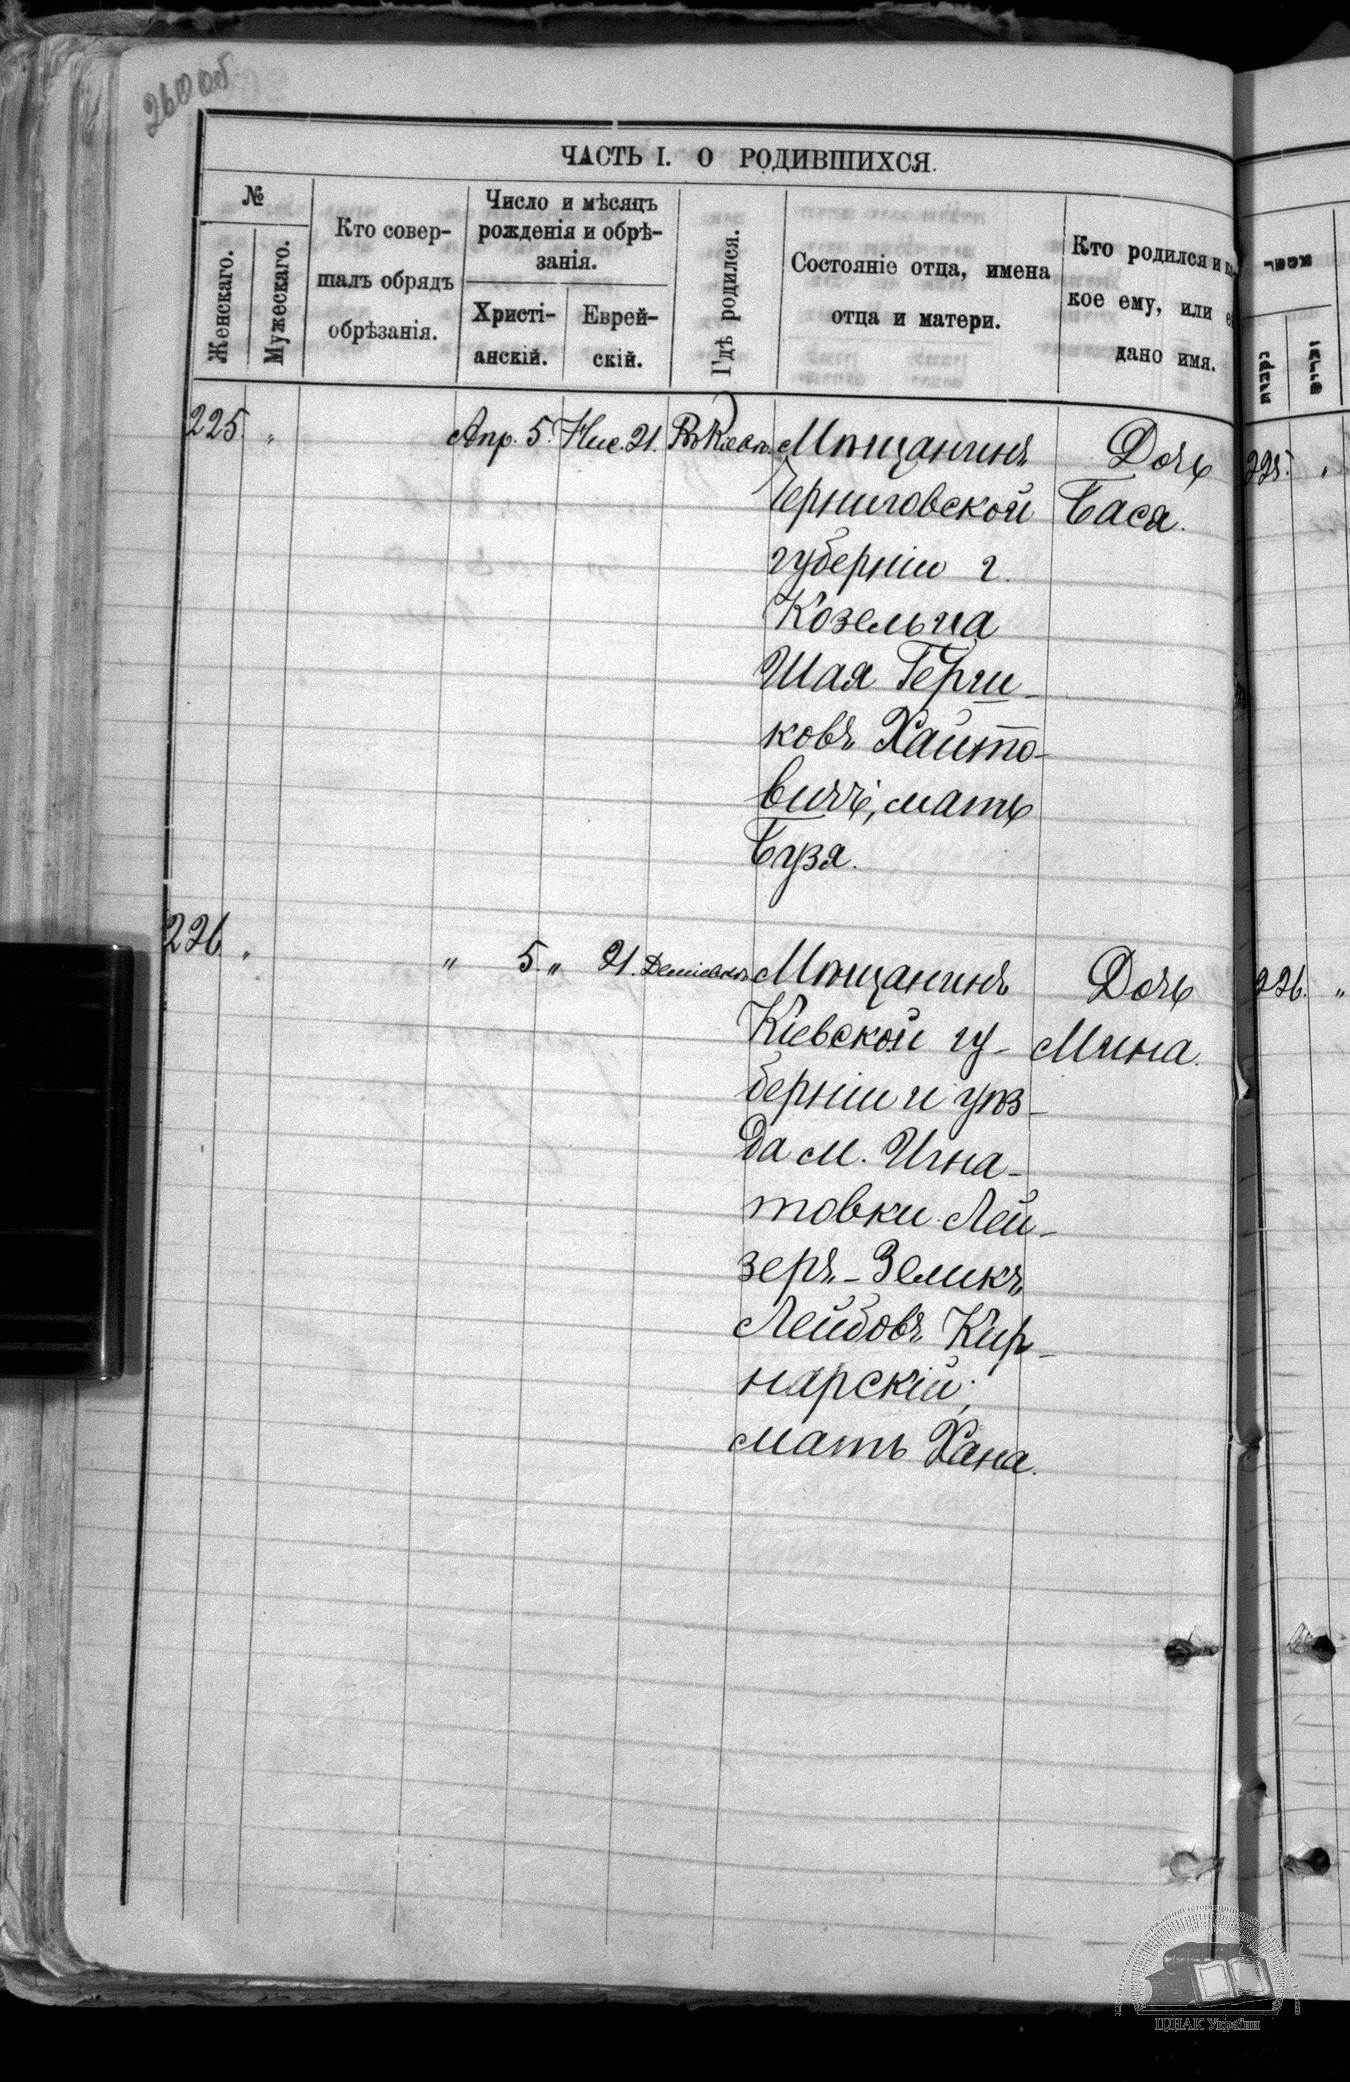 260 об
ЧАСТЬ I. О РОДИВШИХСЯ.
№
Женскаго.
Мужескаго.
Кто совер-
шалъ обрядъ
обрѣзанія.
Число и мѣсяцъ
рожденія и обрѣ-
занія.
Христі-
анскій.
Еврей-
скій.
Гдѣ родился.
Состояніе отца, имена
отца и матери.
Кто родился и ка-
кое ему, или ей
дано имя.
225. " Апр. 5. Нис. 21. Въ Кіевѣ. Мѣщанинъ Дочь
Черниговской Бася.
губерніи г.
Козельца
Шая Герш-
ковъ Хайто-
вичъ, мать
Бузя.
226. " " 5. " 21. Деміевкѣ Мѣщанинъ Дочь
Кіевской гу- Мина.
берніи и уѣз-
да м. Игна-
товки Лей-
зеръ-Зеликъ
Лейбовъ Кир-
нарскій,
мать Хана.
225. "
226. "
ЦДІАК України